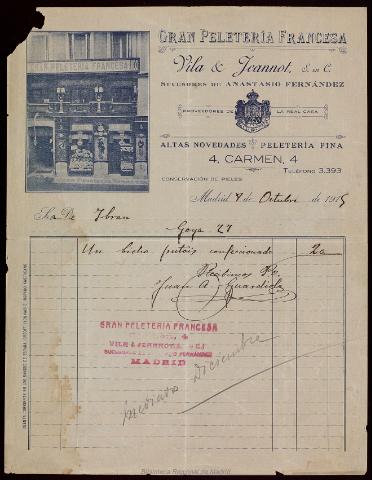 GRAN PELETERÍA FRANCESA
GRAN PELETERÍA FRANCESA
Vila & Jeannot, S. en C.
SUCESORES DE ANASTASIO FERNÁNDEZ
PROVEEDORES DE LA REAL CASA
ALTAS NOVEDADES PELETERÍA FINA
4, CARMEN, 4
TELÉFONO 3.393
CONSERVACIÓN DE PIELES
Madrid 4 de Octubre de 1915
Sra De Ibran
Goya 27
Un bicho putois confeccionado 20
Recibimos
Juan A. Guardiola
GRAN PELETERIA FRANCESA
VILA & JEANNOT, S. en C.
SUCESORES DE ANASTASIO FERNÁNDEZ
MADRID
Diciembre
Biblioteca Regional de Madrid